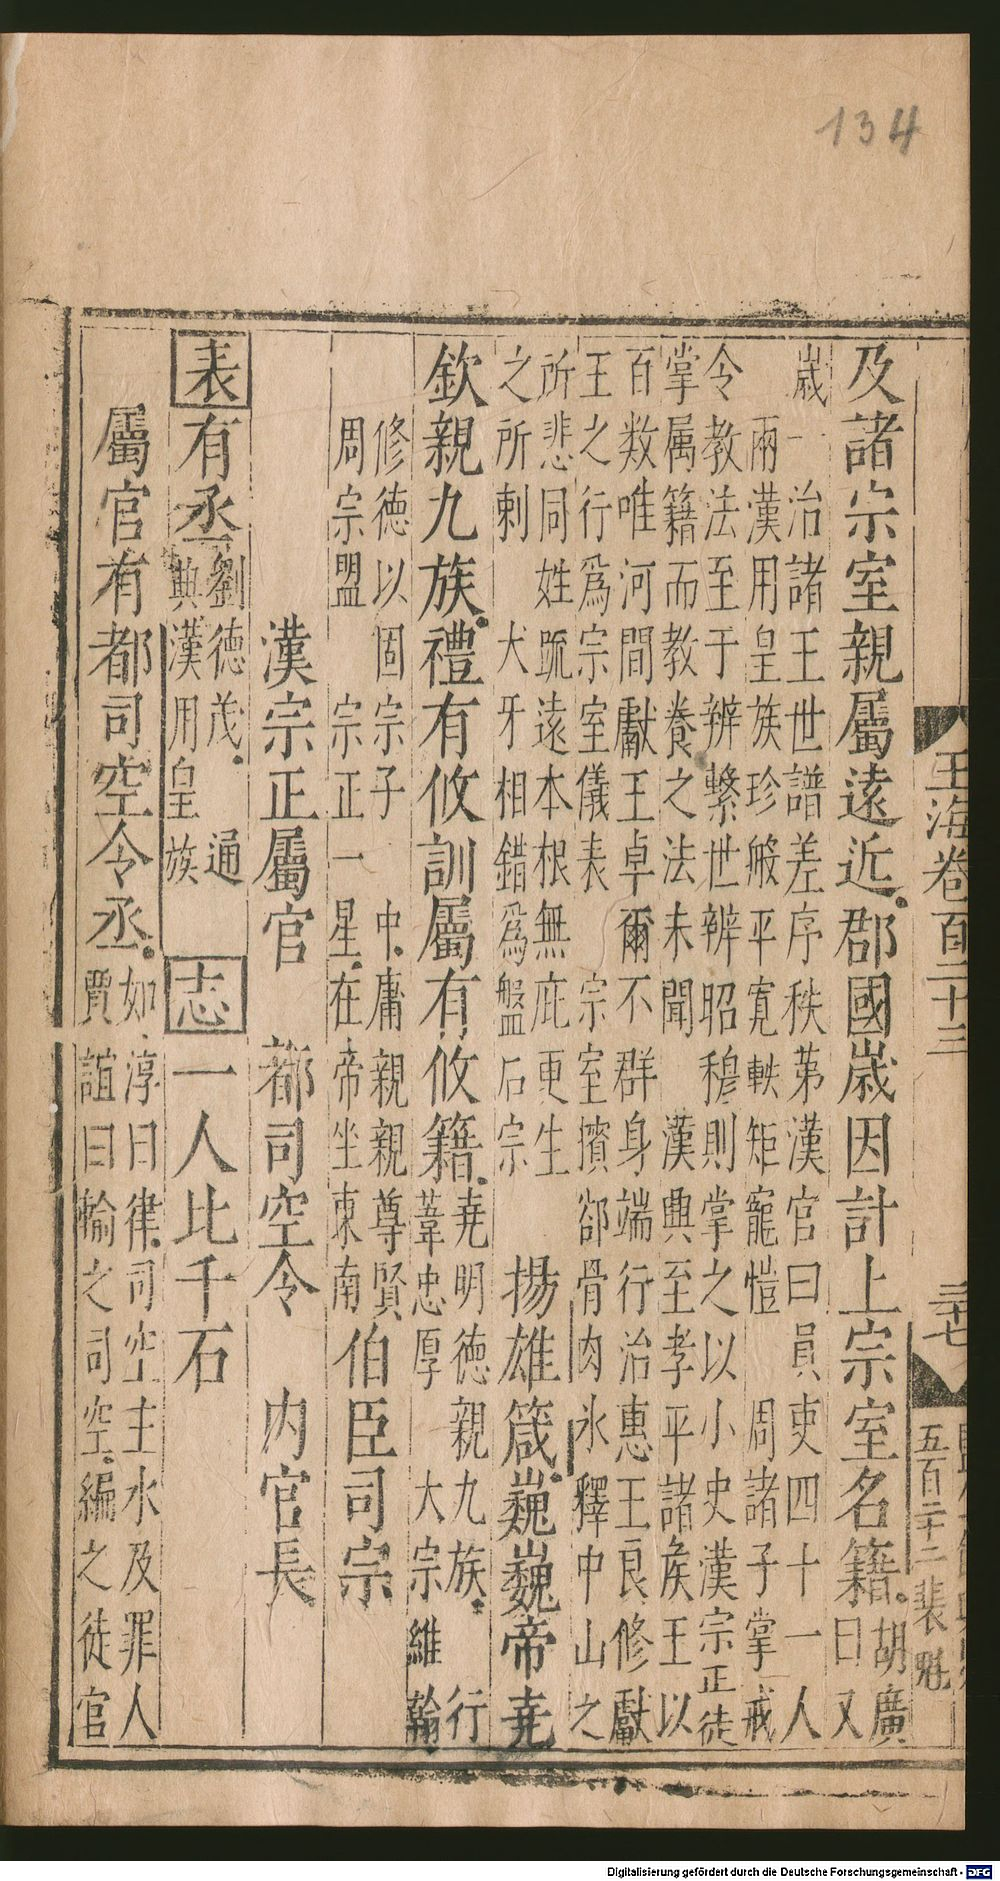 134
玉海卷百二十三
三十七
五百二十二
裴魁
及諸宗室親屬遠近郡國歲因計上宗室名籍胡廣
曰又
歲一治諸王世譜差序秩第漢官曰員吏四十一人
兩漢用皇族珍皷平寛軼矩寵愷 周諸子掌戒
令教法至于辨繫世辨昭穆則掌之以小史漢宗正徒
掌属籍而教養之法未聞 漢興至孝平諸侯王以
百数唯河間獻王卓爾不群身端行治惠王良修獻
王之行為宗室儀表 宗室擯郤骨肉氷釋中山之
所悲同姓䟽遠本根無庇更生
之所剌 犬牙相錯為盤石宗
揚雄箴巍巍帝尭
欽親九族禮有攸訓屬有攸籍尭明德親九族 行
葦忠厚 大宗維翰
修德以固宗子 中庸親親尊賢
周宗盟 宗正一星在帝坐東南
伯臣司宗
漢宗正屬官 都司空令 内官長
表有丞劉德茂 通
典漢用皇族
志一人比千石
屬官有都司空令丞如淳曰律司空主水及罪人
賈誼曰輸之司空編之徒官
Digitalisierung gefördert durch die Deutsche Forschungsgemeinschaft - DFG